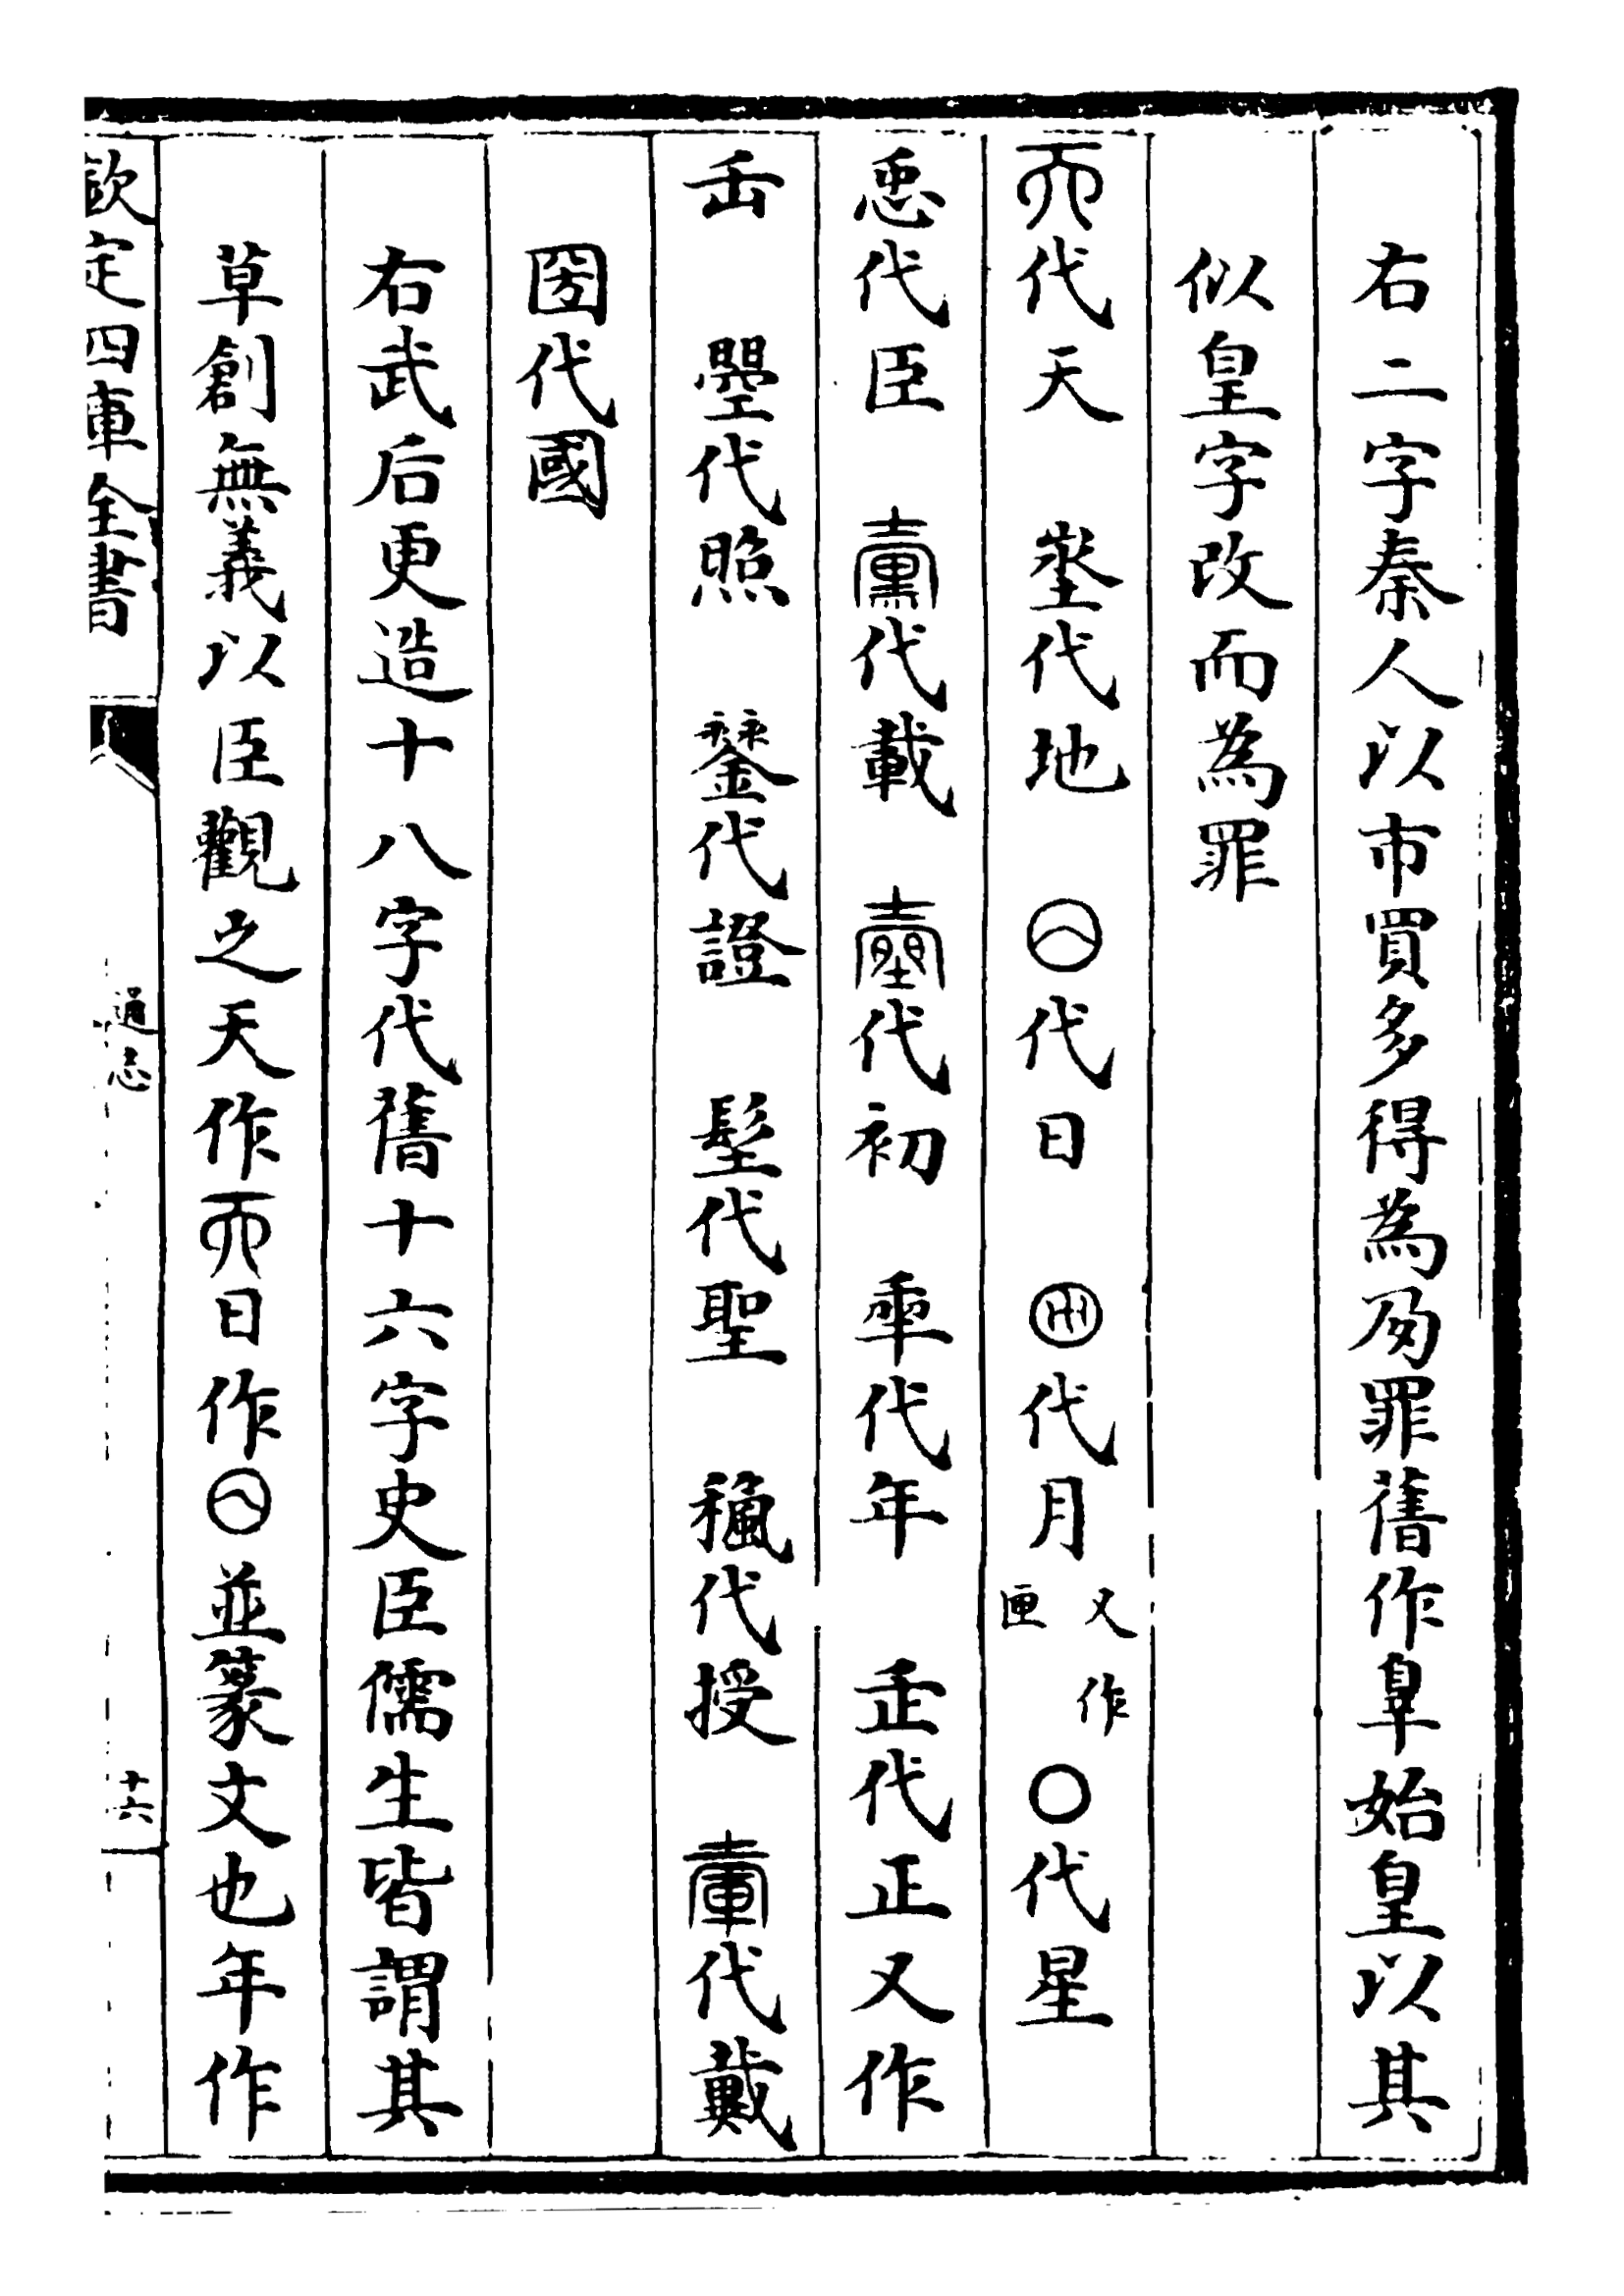 右二字秦人以市買多得為夃罪舊作辠始皇以其
似皇字改而為罪
𠀑代天 埊代地 代日 代月又作 〇代星
𢘑代臣 代載 代初 代年 代正又作
 曌代照 代證 代聖 代授 代戴
圀代國
右武后更造十八字代舊十六字史臣儒生皆謂其
草創無義以臣觀之天作𠀑日作並篆文也年作
欽定四庫全書
通志
十六